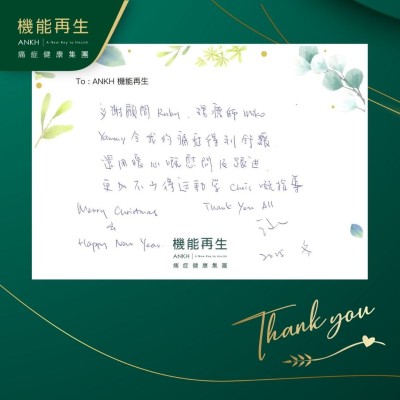 機能再生
ANKH | A New Key to Health
痛症健康集團
To : ANKH 機能再生
多謝顧問 Ruby, 理療師
Yammy 令我的痛症得到舒緩
還用暖心嘅慰問及跟進
更加不少得運動學 Chris 嘅指導
Merry Christmas Thank You All
&
Happy New Year
2025 冬
機能再生
ANKH | A New Key to Health
痛症健康集團
Thank you